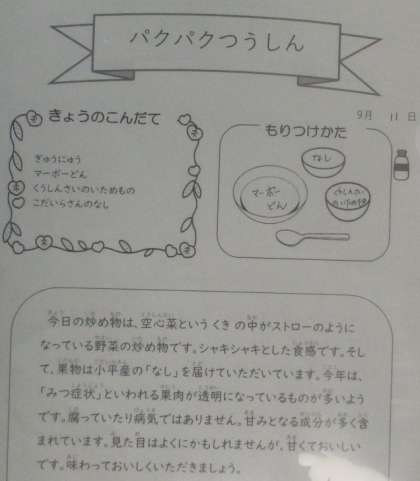 パクパクつうしん
9月 11日
きょうのこんだて
ぎゅうにゅう
マーボーどん
くうしんさいのいためもの
こだいらさんのなし
もりつけかた
なし
マーボー
どん
くうしんさい
のいためもの
今日の炒め物は、空心菜というくきの中がストローのように
なっている野菜の炒め物です。シャキシャキとした食感です。そし
て、果物は小平産の「なし」を届けていただいています。今年は、
「みつ症状」といわれる果肉が透明になっているものが多いよう
です。腐っていたり病気ではありません。甘みとなる成分が多く含
まれています。見た目はよくにかもしれませんが、甘くておいしい
です。味わっておいしくいただきましょう。